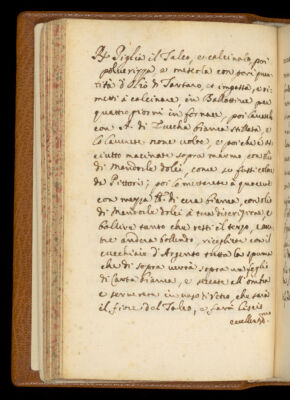 ℞ Piglia il Talco, e calcinalo, poi
poluerizza, e mescola con pari quan
tità d'olio di Tartaro, et impasta, e ri
metti à calcinare in Ballottine per
quattro giorni in fornace, poi
con A. di Zucha bianca stillata, e
lo lauerete noue volte, e poi che è as
ciutto macinate sopra marmo con olio
di Mandorle dolci, come su fusti colori
de Pittori; poi lo metterete à
con mezza lb. di cera bianca, con olio
di Mandorle dolci à tua discrizione, e
bollire tanto che resti il terzo, e com
me anderà bollendo, ricogliete con il
cucchiaio d'Argento tutta la spuma
che di sopra verrà sopra un foglio
di Carta bianca, e seccate all'ombra
e serverete in vaso di vetro, che sarà
il fiore del Talco, e farà Liscio
eccellen:mo